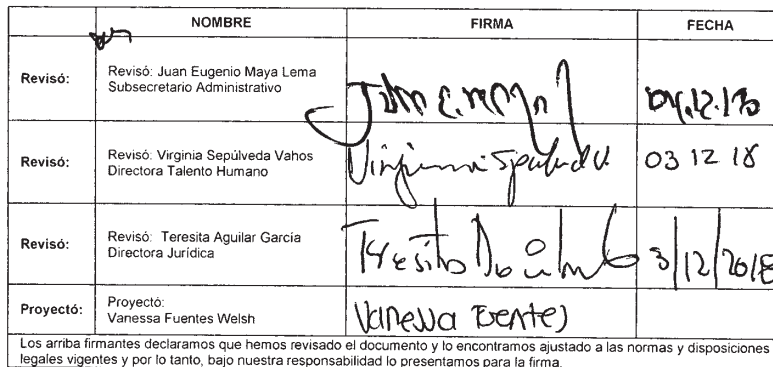 NOMBRE FIRMA FECHA
Revisó: Revisó: Juan Eugenio Maya Lema
Subsecretario Administrativo
Revisó: Revisó: Virginia Sepúlveda Vahos
Directora Talento Humano
03 12 18
Revisó: Revisó: Teresita Aguilar García
Directora Jurídica
Teresita 3/12/2018
Proyectó: Proyectó:
Vanessa Fuentes Welsh
Vanessa Fuentes
Los arriba firmantes declaramos que hemos revisado el documento y lo encontramos ajustado a las normas y disposiciones
legales vigentes y por lo tanto, bajo nuestra responsabilidad lo presentamos para la firma.